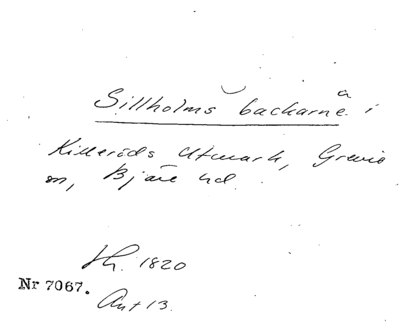 Sillholms backarne i
a
Killeröds Utmark, Grevie
sn, Bjäre hd.
Sk. 1820
Nr 7067.
Akt 13.